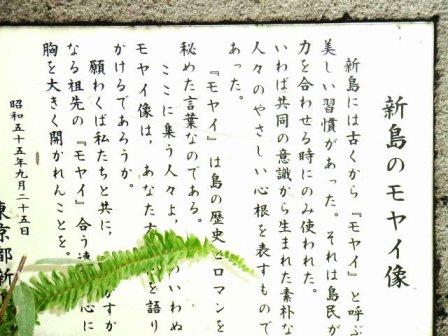 新島のモヤイ像
新島には古くから『モヤイ』と呼ぶ
美しい習慣があった。それは島民が
力を合わせる時にのみ使われた。
いわば共同の意識から生まれた素朴な
人々のやさしい心根を表すもので
あった。
『モヤイ』は島の歴史とロマンを
秘めた言葉なのである。
ここに集う人々よ、のいわぬ
モヤイ像は、あなた方と語り
かけるであろうか。
願わくば私たちと共に、かすか
なる祖先の『モヤイ』合う心に
胸を大きく開かれんことを。
昭和五十五年九月二十五日
東京都新